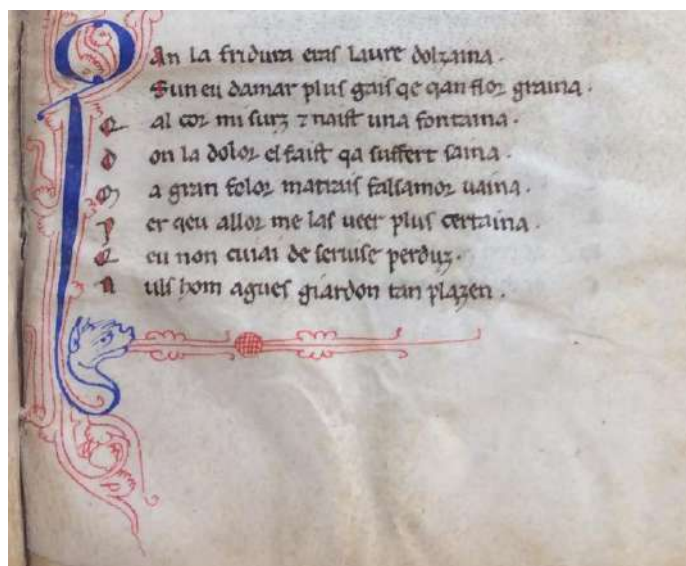 Qan la fridura eras laure dolzaina.
Sun eu damar plus gais qe qan flor graina.
Qal cor mi surz ⁊ naist una fontaina.
Don la dolor el faist qa suffert saina.
a gran folor matrais falsamor uaina.
Per qeu allor me las ueer plus certaina.
Qeu non cuiai de seruise perduz.
Nuls hom agues giardon tan plazen.